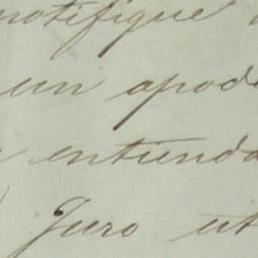 notifique
un apod
entienda
Juro ut